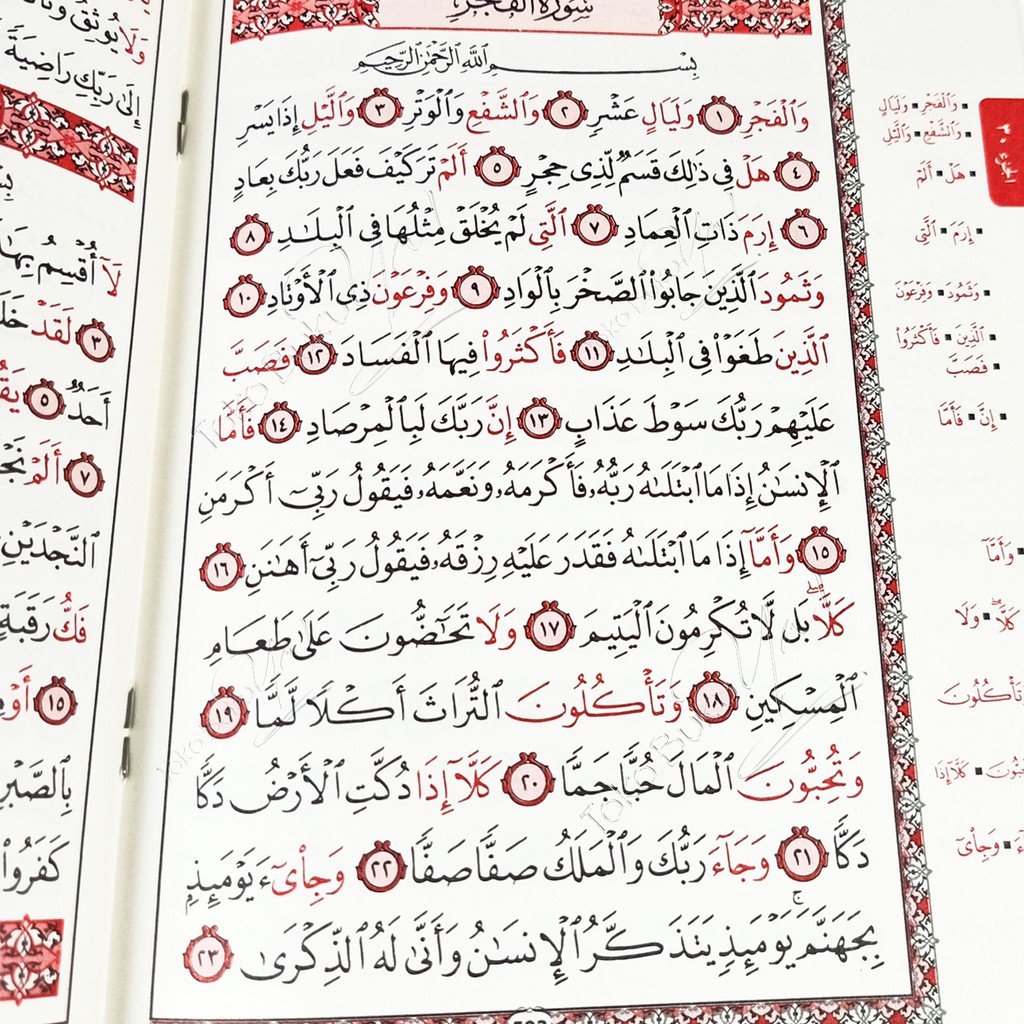 سُورَةُ الْفَجْرِ
بِسْمِ اللَّهِ الرَّحْمَٰنِ الرَّحِيمِ
وَالْفَجْرِ ١ وَلَيَالٍ عَشْرٍ ٢ وَالشَّفْعِ وَالْوَتْرِ ٣ وَاللَّيْلِ إِذَا يَسْرِ
٤ هَلْ فِي ذَٰلِكَ قَسَمٌ لِّذِي حِجْرٍ ٥ أَلَمْ تَرَ كَيْفَ فَعَلَ رَبُّكَ بِعَادٍ
٦ إِرَمَ ذَاتِ الْعِمَادِ ٧ الَّتِي لَمْ يُخْلَقْ مِثْلُهَا فِي الْبِلَادِ ٨
وَثَمُودَ الَّذِينَ جَابُوا الصَّخْرَ بِالْوَادِ ٩ وَفِرْعَوْنَ ذِي الْأَوْتَادِ ١٠
الَّذِينَ طَغَوْا فِي الْبِلَادِ ١١ فَأَكْثَرُوا فِيهَا الْفَسَادَ ١٢ فَصَبَّ
عَلَيْهِمْ رَبُّكَ سَوْطَ عَذَابٍ ١٣ إِنَّ رَبَّكَ لَبِالْمِرْصَادِ ١٤ فَأَمَّا
الْإِنسَانُ إِذَا مَا ابْتَلَاهُ رَبُّهُ فَأَكْرَمَهُ وَنَعَّمَهُ فَيَقُولُ رَبِّي أَكْرَمَنِ
١٥ وَأَمَّا إِذَا مَا ابْتَلَاهُ فَقَدَرَ عَلَيْهِ رِزْقَهُ فَيَقُولُ رَبِّي أَهَانَنِ ١٦
كَلَّا بَل لَّا تُكْرِمُونَ الْيَتِيمَ ١٧ وَلَا تَحَاضُّونَ عَلَىٰ طَعَامِ
الْمِسْكِينِ ١٨ وَتَأْكُلُونَ التُّرَاثَ أَكْلًا لَّمًّا ١٩
وَتُحِبُّونَ الْمَالَ حُبًّا جَمًّا ٢٠ كَلَّا إِذَا دُكَّتِ الْأَرْضُ دَكًّا
دَكًّا ٢١ وَجَاءَ رَبُّكَ وَالْمَلَكُ صَفًّا صَفًّا ٢٢ وَجِايءَ يَوْمَئِذٍ
بِجَهَنَّمَ يَوْمَئِذٍ يَتَذَكَّرُ الْإِنسَانُ وَأَنَّىٰ لَهُ الذِّكْرَىٰ ٢٣
▪ وَالْفَجْرِ ▪ وَلَيَالٍ
▪ وَالشَّفْعِ ▪ وَاللَّيْلِ
▪ هَلْ ▪ أَلَمْ
▪ إِرَمَ ▪ الَّتِي
▪ وَثَمُودَ ▪ وَفِرْعَوْنَ
▪ الَّذِينَ ▪ فَأَكْثَرُوا
▪ فَصَبَّ
▪ إِنَّ ▪ فَأَمَّا
▪ وَأَمَّا
كَلَّا ▪ وَلَا
تَأْكُلُونَ
▪ كَلَّا إِذَا
▪ وَجِايءَ
الجزء ٣٠
وَلَا يُوثِقُ
إِلَىٰ رَبِّكِ رَاضِيَةً
لَا أُقْسِمُ بِهَٰ
٣ لَقَدْ
أَحَدٌ ٥
٧ أَلَمْ
النَّجْدَيْنِ
فَكُّ رَقَبَةٍ
١٥ أَوْ
بِالصَّبْرِ
كَفَرُوا